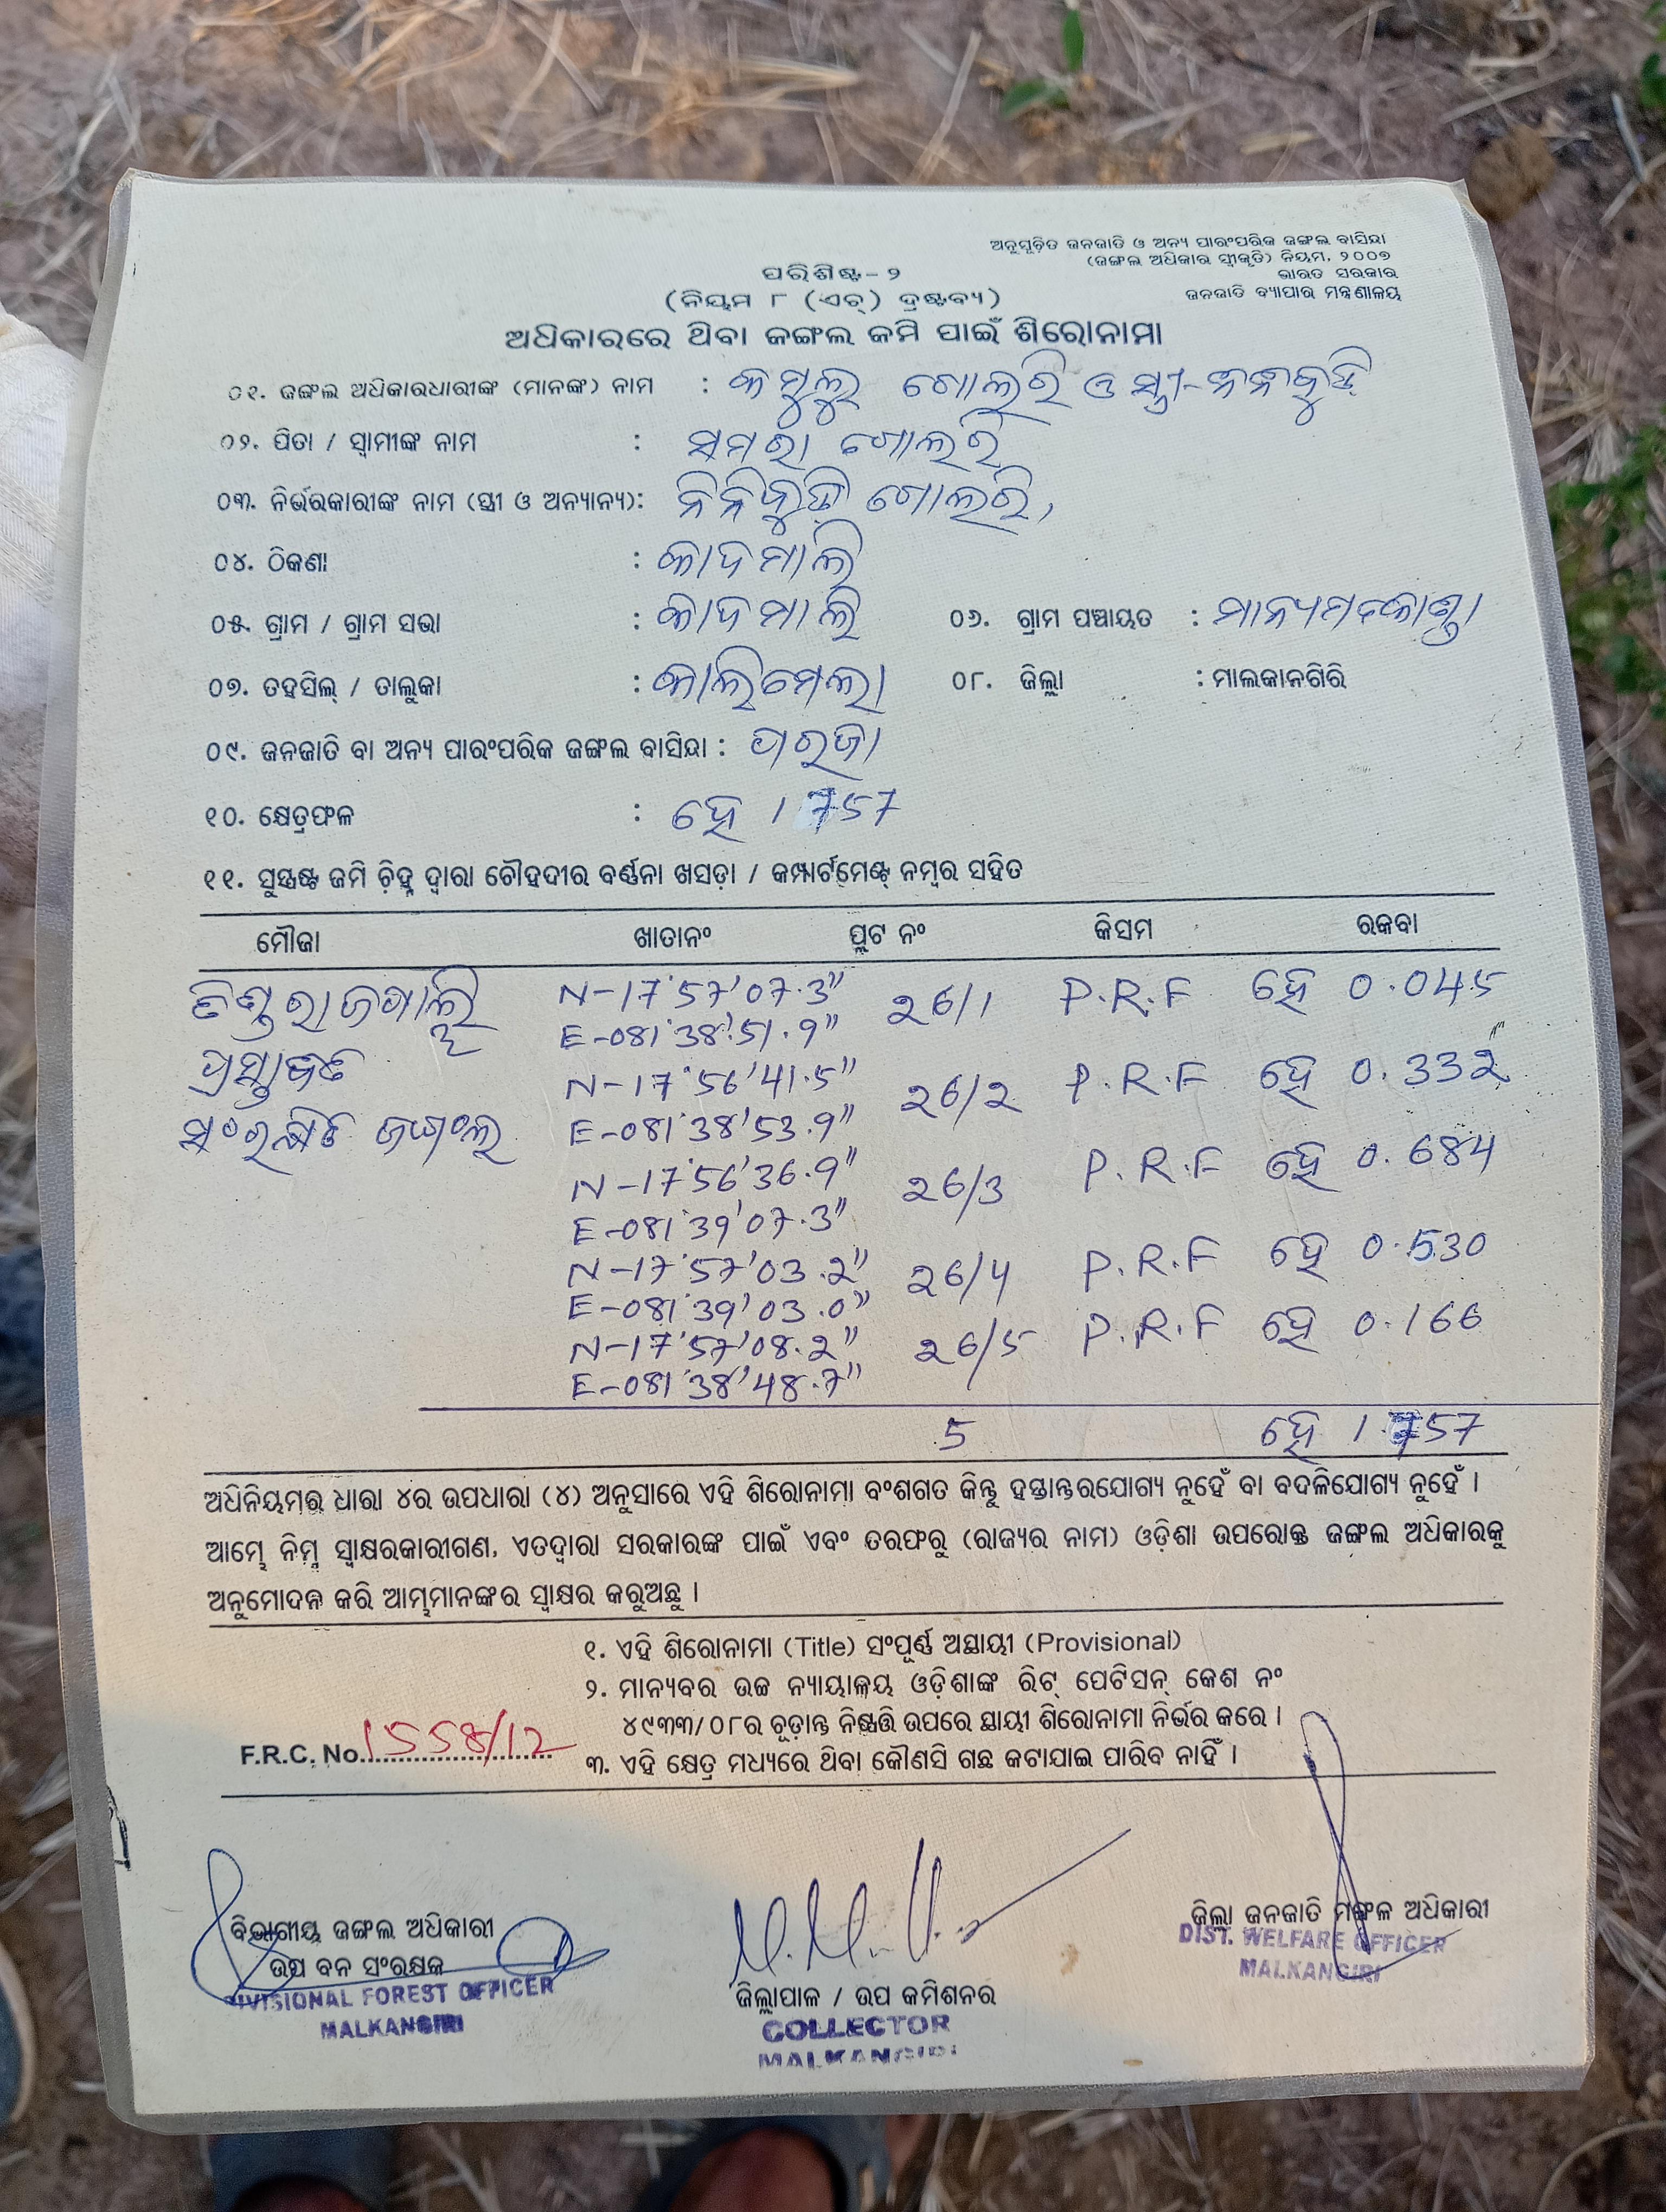 ଅନୁସୂଚିତ ଜନଜାତି ଓ ଅନ୍ୟ ପାରଂପରିକ ଜଙ୍ଗଲ ବାସିନ୍ଦା
(ଜଙ୍ଗଲ ଅଧିକାର ସ୍ୱୀକୃତି) ନିୟମ, ୨୦୦୭
ଭାରତ ସରକାର
ଜନଜାତି ବ୍ୟାପାର ମନ୍ତ୍ରଣାଳୟ
ପରିଶିଷ୍ଟ- ୨
(ନିୟମ ୮ (ଏଚ୍) ଦ୍ରଷ୍ଟବ୍ୟ)
ଅଧିକାରରେ ଥିବା ଜଙ୍ଗଲ ଜମି ପାଇଁ ଶିରୋନାମା
୦୧. ଜଙ୍ଗଲ ଅଧିକାରଧାରୀଙ୍କ (ମାନଙ୍କ) ନାମ : ଗୋଲରି ଓ ସ୍ତ୍ରୀ-
୦୨. ପିତା / ସ୍ୱାମୀଙ୍କ ନାମ : ସମରା ଗୋଲରି
୦୩. ନିର୍ଭରକାରୀଙ୍କ ନାମ (ସ୍ତ୍ରୀ ଓ ଅନ୍ୟାନ୍ୟ): ଗୋଲରି,
୦୪. ଠିକଣା : କାଦମାଲି
୦୫. ଗ୍ରାମ / ଗ୍ରାମ ସଭା : କାଦମାଲି ୦୬. ଗ୍ରାମ ପଞ୍ଚାୟତ : ମାନ୍ୟମକୋଣ୍ଡା
୦୭. ତହସିଲ୍ / ତାଲୁକା : କାଲିମେଲା ୦୮. ଜିଲ୍ଲା : ମାଲକାନଗିରି
୦୯. ଜନଜାତି ବା ଅନ୍ୟ ପାରଂପରିକ ଜଙ୍ଗଲ ବାସିନ୍ଦା : ପରଜା
୧୦. କ୍ଷେତ୍ରଫଳ : ହେ 1.757
୧୧. ସୁସ୍ପଷ୍ଟ ଜମି ଚିହ୍ନ ଦ୍ୱାରା ଚୌହଦୀର ବର୍ଣ୍ଣନା ଖସଡ଼ା / କମ୍ପାର୍ଟମେଣ୍ଟ୍ ନମ୍ବର ସହିତ
ମୌଜା ଖାତାନଂ ପ୍ଲଟ ନଂ କିସମ ରକବା
N-17°57'07.3" 26/1 P.R.F ହେ 0.045
E-081°38'51.9"
ପ୍ରସ୍ତାବିତ N-17°56'41.5" 26/2 P.R.F ହେ 0.332
ସଂରକ୍ଷିତ ଜଙ୍ଗଲ E-081°38'53.9"
N-17°56'36.9" 26/3 P.R.F ହେ 0.684
E-081°39'07.3"
N-17°57'03.2" 26/4 P.R.F ହେ 0.530
E-081°39'03.0"
N-17°57'08.2" 26/5 P.R.F ହେ 0.166
E-081°38'48.7"
5 ହେ 1.757
ଅଧିନିୟମର ଧାରା ୪ର ଉପଧାରା (୪) ଅନୁସାରେ ଏହି ଶିରୋନାମା ବଂଶଗତ କିନ୍ତୁ ହସ୍ତାନ୍ତରଯୋଗ୍ୟ ନୁହେଁ ବା ବଦଳିଯୋଗ୍ୟ ନୁହେଁ ।
ଆମ୍ଭେ ନିମ୍ନ ସ୍ୱାକ୍ଷରକାରୀଗଣ, ଏତଦ୍ୱାରା ସରକାରଙ୍କ ପାଇଁ ଏବଂ ତରଫରୁ (ରାଜ୍ୟର ନାମ) ଓଡ଼ିଶା ଉପରୋକ୍ତ ଜଙ୍ଗଲ ଅଧିକାରକୁ
ଅନୁମୋଦନ କରି ଆମ୍ଭମାନଙ୍କର ସ୍ୱାକ୍ଷର କରୁଅଛୁ ।
୧. ଏହି ଶିରୋନାମା (Title) ସଂପୂର୍ଣ୍ଣ ଅସ୍ଥାୟୀ (Provisional)
୨. ମାନ୍ୟବର ଉଚ୍ଚ ନ୍ୟାୟାଳୟ ଓଡ଼ିଶାଙ୍କ ରିଟ୍ ପେଟିସନ୍ କେଶ ନଂ
୪୯୩୩/୦୮ର ଚୂଡ଼ାନ୍ତ ନିଷ୍ପତ୍ତି ଉପରେ ସ୍ଥାୟୀ ଶିରୋନାମା ନିର୍ଭର କରେ ।
F.R.C. No. 1558/12
୩. ଏହି କ୍ଷେତ୍ର ମଧ୍ୟରେ ଥିବା କୌଣସି ଗଛ କଟାଯାଇ ପାରିବ ନାହିଁ ।
ବିଭାଗୀୟ ଜଙ୍ଗଲ ଅଧିକାରୀ
ଉପ ବନ ସଂରକ୍ଷକ
DIVISIONAL FOREST OFFICER
MALKANGIRI
ଜିଲ୍ଲାପାଳ / ଉପ କମିଶନର
COLLECTOR
MALKANGIRI
ଜିଲ୍ଲା ଜନଜାତି ମଙ୍ଗଳ ଅଧିକାରୀ
DIST. WELFARE OFFICER
MALKANGIRI